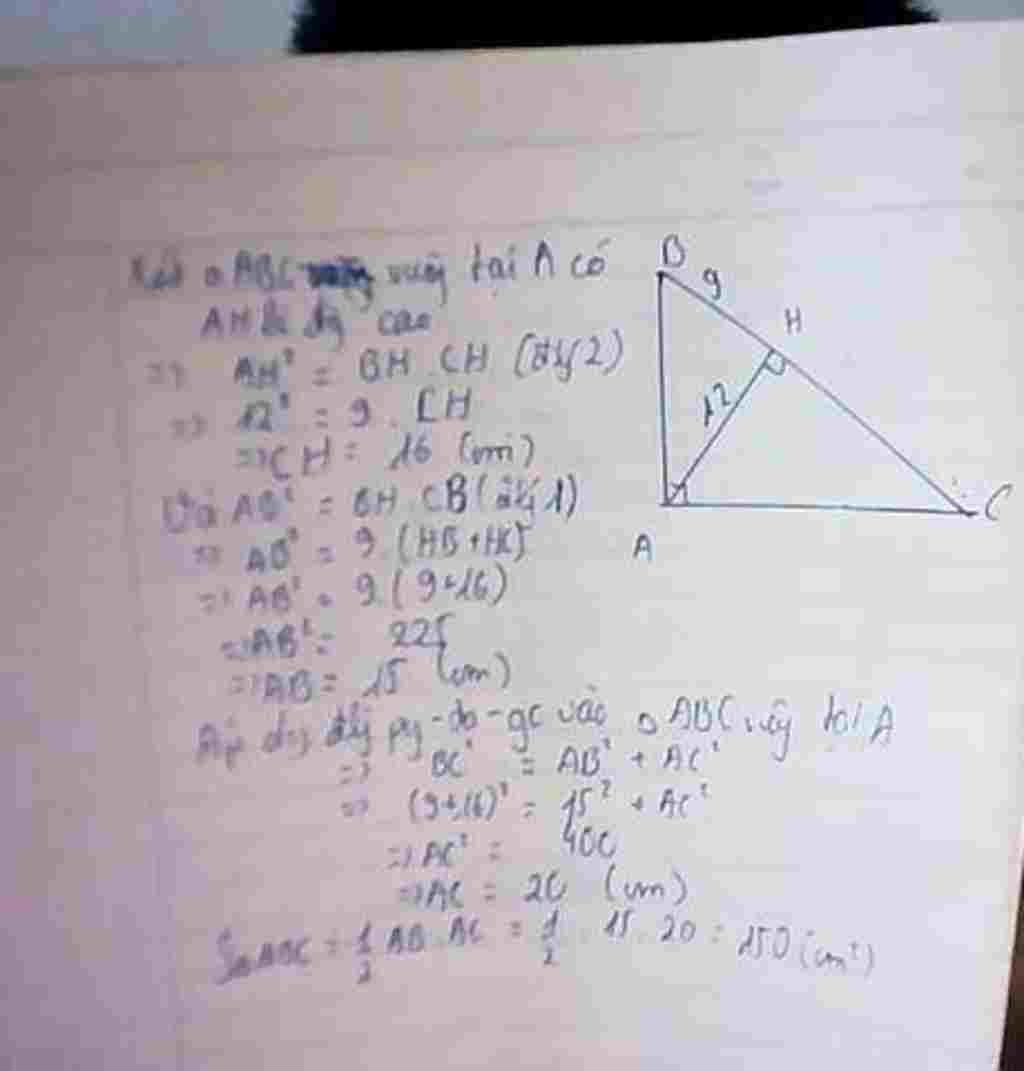 Xét △ABC vuông tại A có
AH là đg cao
=> AH² = BH . CH (đlý 2)
=> 12² = 9 . CH
=> CH = 16 (cm)
Và AB² = BH . CB (đlý 1)
=> AB² = 9 . (HB + HC)
=> AB² = 9 . (9 + 16)
=> AB² = 225
=> AB = 15 (cm)
Áp dg đlý py-do-gc vào △ABC vuôg tại A
=> BC² = AB² + AC²
=> (9+16)² = 15² + AC²
=> AC² = 400
=> AC = 20 (cm)
S△ABC = 1/2 AB . AC = 1/2 . 15 . 20 = 150 (cm²)
B
9
H
12
A
C